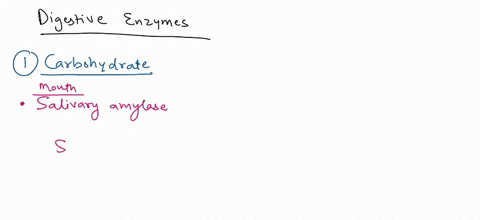 Digestive Enzymes
1 Carbohydrate
mouth
• Salivary amylase
S